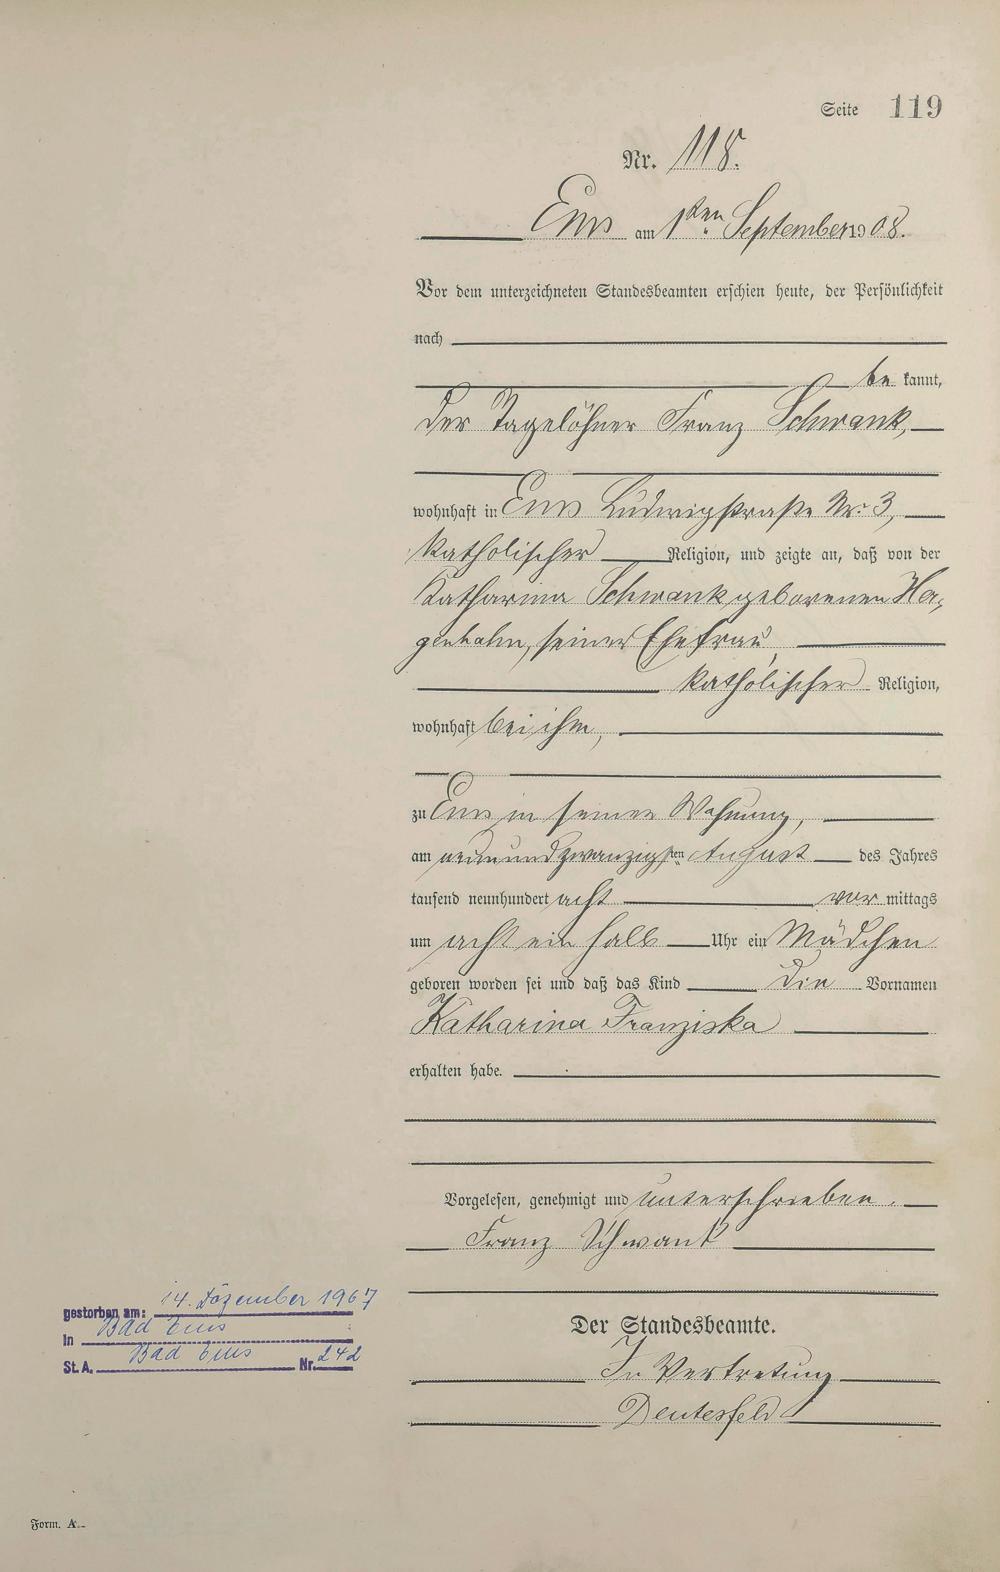 Seite 119
Nr. 118.
Ems am 1ten September 1908.
Vor dem unterzeichneten Standesbeamten erschien heute, der Persönlichkeit
nach
be kannt,
der Tagelöhner Franz Schwank,
wohnhaft in Ems Ludwigstraße Nr. 3,
katholischer Religion, und zeigte an, daß von der
Katharina Schwank geborenen Ha,
genhahn, seiner Ehefrau,
katholischer Religion,
wohnhaft bei ihm,
zu Ems in seiner Wohnung,
am neunundzwanzigsten August des Jahres
tausend neunhundert acht vor mittags
um acht ein halb Uhr ein Mädchen
geboren worden sei und daß das Kind die Vornamen
Katharina Franziska
erhalten habe.
Vorgelesen, genehmigt und unterschrieben.
Franz Schwank
Der Standesbeamte.
In Vertretung
gestorben am: 14. Dezember 1967
in Bad Ems
St. A. Bad Ems Nr. 242
Form. A.